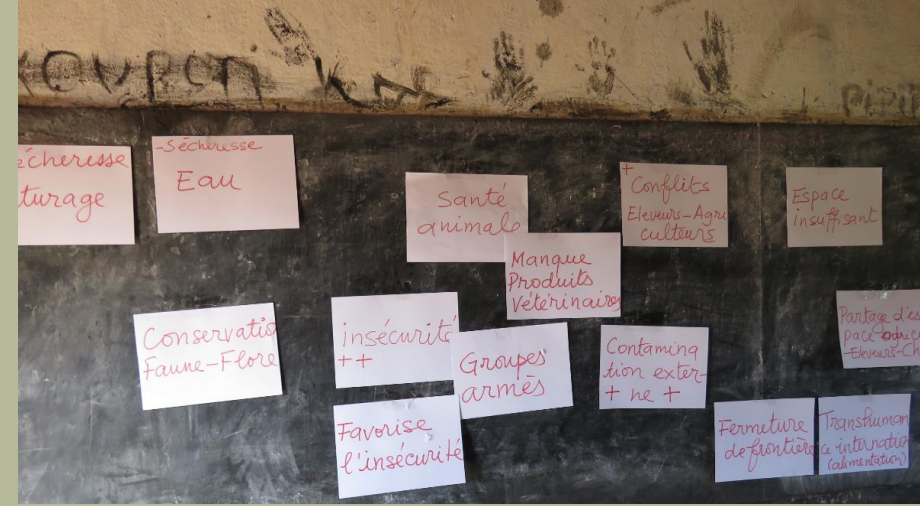 -Sécheresse
Eau
écheresse
turage
Santé
animale
+
Conflits
Eleveurs-Agri
culteurs
Espace
insuffisant
Manque
Produits
Vétérinaires
Conservatio
Faune-Flore
insécurité
++
Groupes
armés
Contamina
tion exter-
+ ne +
Partage d'es
pace
-Eleveurs-Ch
Favorise
l'insécurité
Fermeture
de frontière
Transhuman
ce internatio
(alimentation)